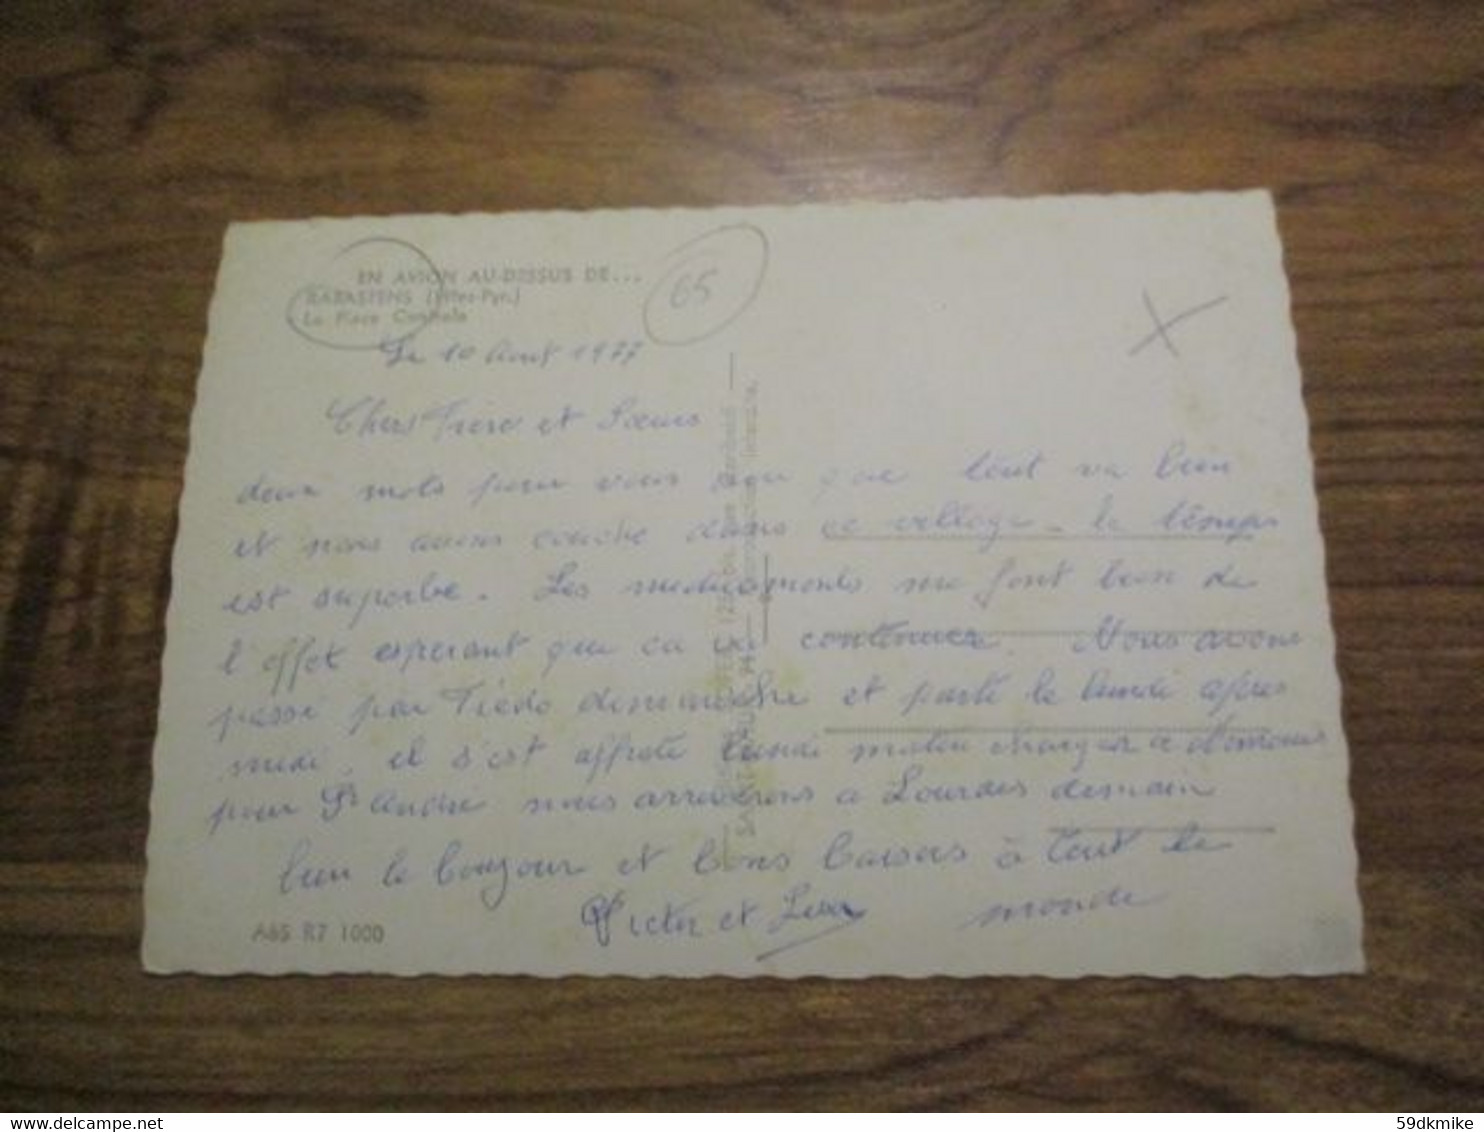 EN AVION AU-DESSUS DE...
RABASTENS (Htes-Pyr.)
La Place Centrale
65
Le 10 Aout 1977
Chers Frère et Sœurs
deux mots pour vous que tout va bien
et nous avons couche dans ce village. le temps
est superbe. Les medicaments me font bien de
l'effet esperant que ca va continuer. Nous avons
passé par dimanche et parté le lundi apres
midi. il s'est lundi matin charger a
pour St André nous arriverons a Lourdes demain
bien le bonjour et bons baisers à tout le
monde
Victor et
A65 R7 1000
59dkmike